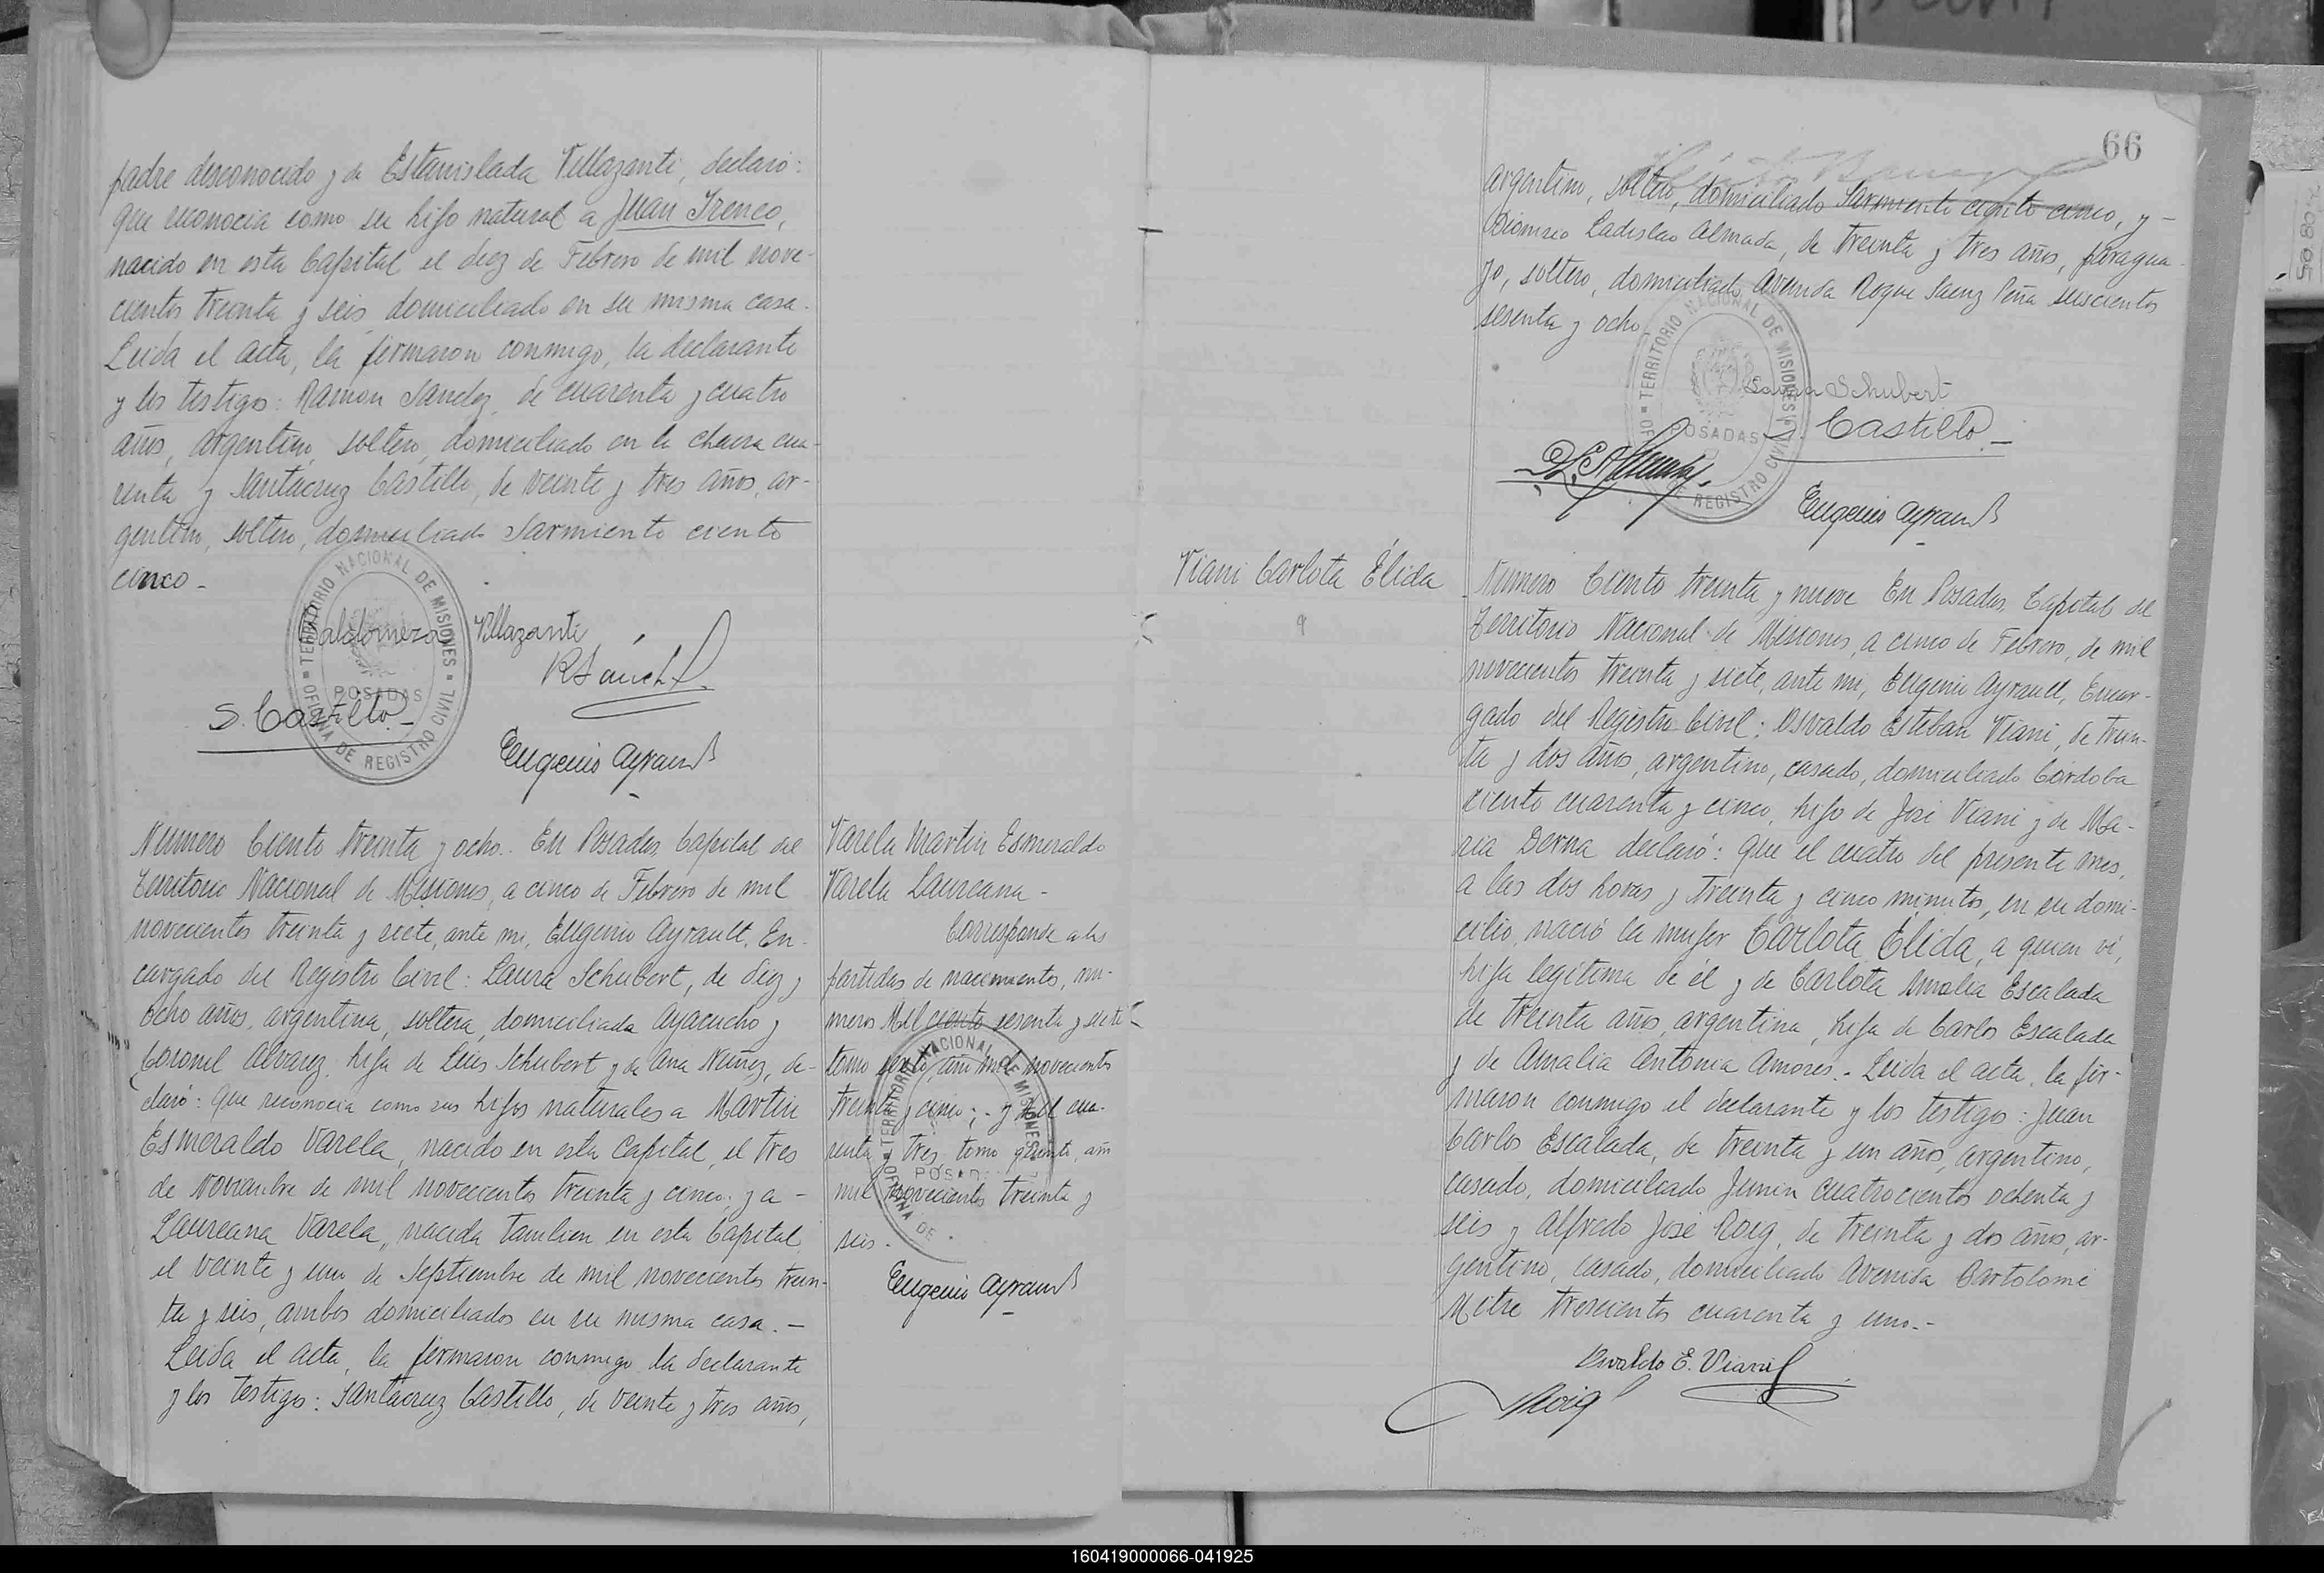 padre desconocido y de Estanislada Villazanti, declaró:
que reconocia como su hijo natural a Juan Ireneo,
nacido en esta Capital el diez de Febrero de mil nove-
cientos treinta y seis domiciliado en su misma casa.
Leida el acta, la firmaron conmigo, la declarante
y los testigos: Ramon Sanchez, de cuarenta y cuatro
años, argentino, soltero, domiciliado en la chacra cua-
renta y Santacruz Castillo, de veinte y tres años, ar-
gentino, soltero, domiciliado Sarmiento ciento
cinco -
Baldomera Villazanti
R Sánchez
S. Castillo -
Eugenio Ayrault
TERRITORIO NACIONAL DE MISIONES
POSADAS
OFICINA DE REGISTRO CIVIL
Numero Ciento treinta y ocho.. En Posadas, Capital del
Territorio Nacional de Misiones, a cinco de Febrero de mil
novecientos treinta y siete, ante mi, Eugenio Ayrault, En-
cargado del Registro Civil: Laura Schubert, de diez y
ocho años, argentina, soltera, domiciliada Ayacucho y
Coronel Alvarez, hija de Luis Schubert y de Ana Nuñez, de-
claró: que reconocia como sus hijos naturales a Martin
Esmeraldo Varela, nacido en esta Capital, el tres
de Noviembre de mil novecientos treinta y cinco; y a -
Laureana Varela, nacida tambien en esta Capital
el veinte y uno de Septiembre de mil novecientos trein-
ta y seis, ambos domiciliados en su misma casa. -
Leida el acta, la firmaron conmigo la declarante
y los testigos: Santacruz Castillo, de veinte y tres años,
Varela Martin Esmeraldo
Varela Laureana -
Corresponde a las
partidas de nacimientos, nu-
meros Mil ciento sesenta y siete -
tomo sexto, año mil novecientos
treinta y cinco; - y mil cua-
renta y tres, tomo quinto, año
mil novecientos treinta y
seis -
Eugenio Ayrault
TERRITORIO NACIONAL DE MISIONES
OFICINA DE
66
argentino, soltero, domiciliado Sarmiento ciento cinco, y -
Dionisio Ladislao Almada, de treinta y tres años, paragua-
yo, soltero, domiciliado Avenida Roque Saenz Peña seiscientos
sesenta y ocho
Laura Schubert
S. Castillo -
D.L. Almada
Eugenio Ayrault
TERRITORIO NACIONAL DE MISIONES
POSADAS
REGISTRO CIVIL
Viani Carlota Élida
9
Numero Ciento treinta y nueve En Posadas, Capital del
Territorio Nacional de Misiones, a cinco de Febrero, de mil
novecientos treinta y siete, ante mi, Eugenio Ayrault, Encar-
gado del Registro Civil: Osvaldo Esteban Viani, de trein-
ta y dos años, argentino, casado, domiciliado Córdoba
ciento cuarenta y cinco, hijo de José Viani y de Ma-
ria Derna declaró: que el cuatro del presente mes,
a las dos horas y treinta y cinco minutos, en su domi-
cilio, nació la mujer Carlota Élida, a quien vi,
hija legitima de él y de Carlota Amalia Escalada
de treinta años, argentina, hija de Carlos Escalada
y de Amalia Antonia Amores.- Leida el acta, la fir-
maron conmigo el declarante y los testigos: Juan
Carlos Escalada, de treinta y un años, argentino,
casado, domiciliado Junin cuatrocientos ochenta y
seis y Alfredo José Roig, de treinta y dos años, ar-
gentino, casado, domiciliado Avenida Bartolomé
Mitre trescientos cuarenta y uno.-
Osvaldo E. Viani
Roig
160419000066-041925